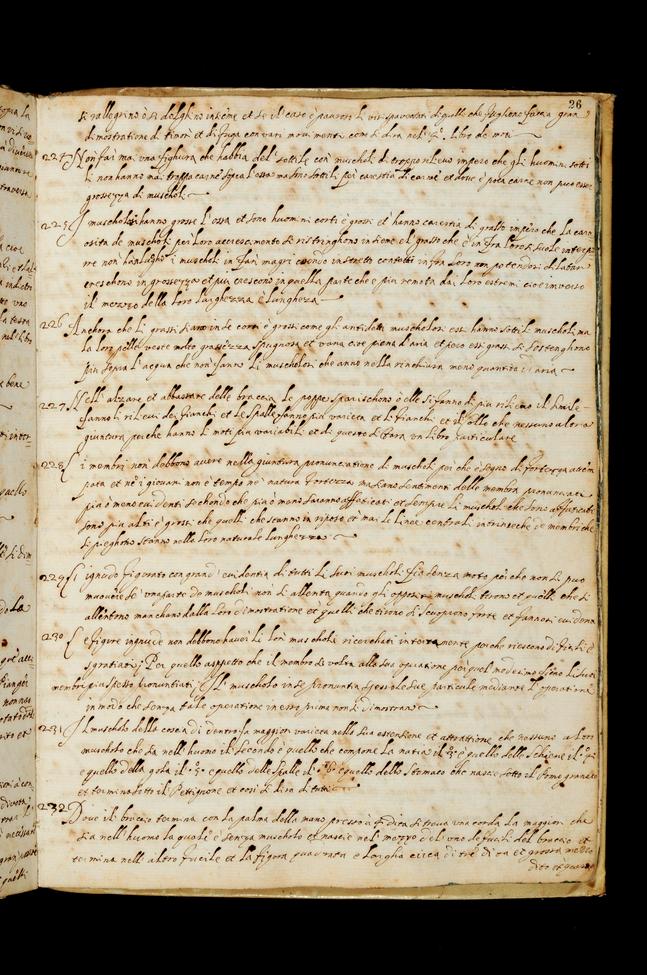 26
si rallegrino ò si dolghino insieme et se il caso è pauroso li visi spaventati di quelle che fughano faccia gran
dimostratione di timori et di fuga con vari movimenti come si dirà nel 4.º libro de moti
224 Non fai mai una fighura che habbia del sottile con muscholi di troppo rilievo impero che gli huomini sotti
li non hanno mai troppa carne sopra l'ossa ma sono sottili per carestia di carne et dove è poca carne non puo essere
grossezza di muscholi
225 I muscholosi hanno grosse l'ossa et sono huomini corti è grossi et hanno carestia di grasso impero che la carn
osita de muscholi per loro accrescimento si ristringhono insieme el grasso che è infra loro si suole interpo
rre non ha luogho i muscholi in tai magri essendo in fra loro non potendosi dilatar
creschono in grossezza et piu crescono in quella parte che è piu remota dai loro estremi cioe inverso
il mezzo della loro larghezza è lungheza
226 Anchora che li grassi siano in se corti è grossi come gli antidetti muscholosi essi hanno sottili muscholi ma
la loro pelle veste molto grassezza spugnosa et vana cioe piena d'aria et pero essi grassi si sostenghono
piu sopra l'acqua che non fanno li muscholosi che anno nella rinchiusa meno quantità di aria
227 Nell alzare et abbassare delle braccia le poppe sparischono ò elle si fanno di piu rilievo il simile
fanno li rilievi dei fianchi et le spalle fanno piu varieta et li fianchi et il collo che nessuno altra
giuntura perche hanno li moti piu variabili et di questo si farà un libro particulare
228 I membri non debbono avere nella giuntura pronunciatione di muscholi poi che è segno di fortezza anticip
pata et ne i giovani non è tempo ne natura fortezza ma sieno sentimenti delle membra pronunciate
piu ò meno evidenti secondo che piu ò meno saranno affaticati et sempre li muscholi che sono affaticati
sono piu alti è grossi che quelli che stanno in riposo et mai le linee centrali intrinseche de membri che
si pieghono stanno nella loro naturale lunghezza
229 Il ignudo figurato con grand' evidentia di tutti li suoi muscholi fia senza moto poi che non si puo
muovere se una parte de muscholi non si allenta quando gli oppositi muscholi tirono et quelli che si
allentono manchono dalla loro dimostratione et quelli che tirono si scuoprono forte et fannosi evidenti
230 Le figure ignude non debbono havere li lor muscholi ricerchati interamente perche riescono difficili è
sgratiati; Per quello aspetto che il membro si volta alla sua operatione per quel medesimo sieno li suoi
membri piu spesso pronuntiati; Il muscholo in se pronuntia spesso le sue particule mediante l'operatione
in modo che senza tale operatione in esso prima non si dimostrano
231 Il muscholo della coscia di dentro fa maggior varieta nella sua estensione et attrattione che nessuno altro
muscholo che sia nell'huomo il secondo è quello che compone la natica il 3º è quello delle schiene il 4º
è quello della gola il 5º è quello delle spalle il 6º è quello dello stomaco che nasce sotto il pomo granato
et termina sotto il pettignone et cosi si dira di tutti
232 Dove il braccio termina con la palma della mano presso à 4 dita si trova una corda la maggior che
sia nell'huomo la quale è senza muscholo et nascie nel mezzo del uno de fucili del braccio et
termina nell altro fucile et la figura quadrata è largha circa di tre dita et grossa mezzo
dito et questa